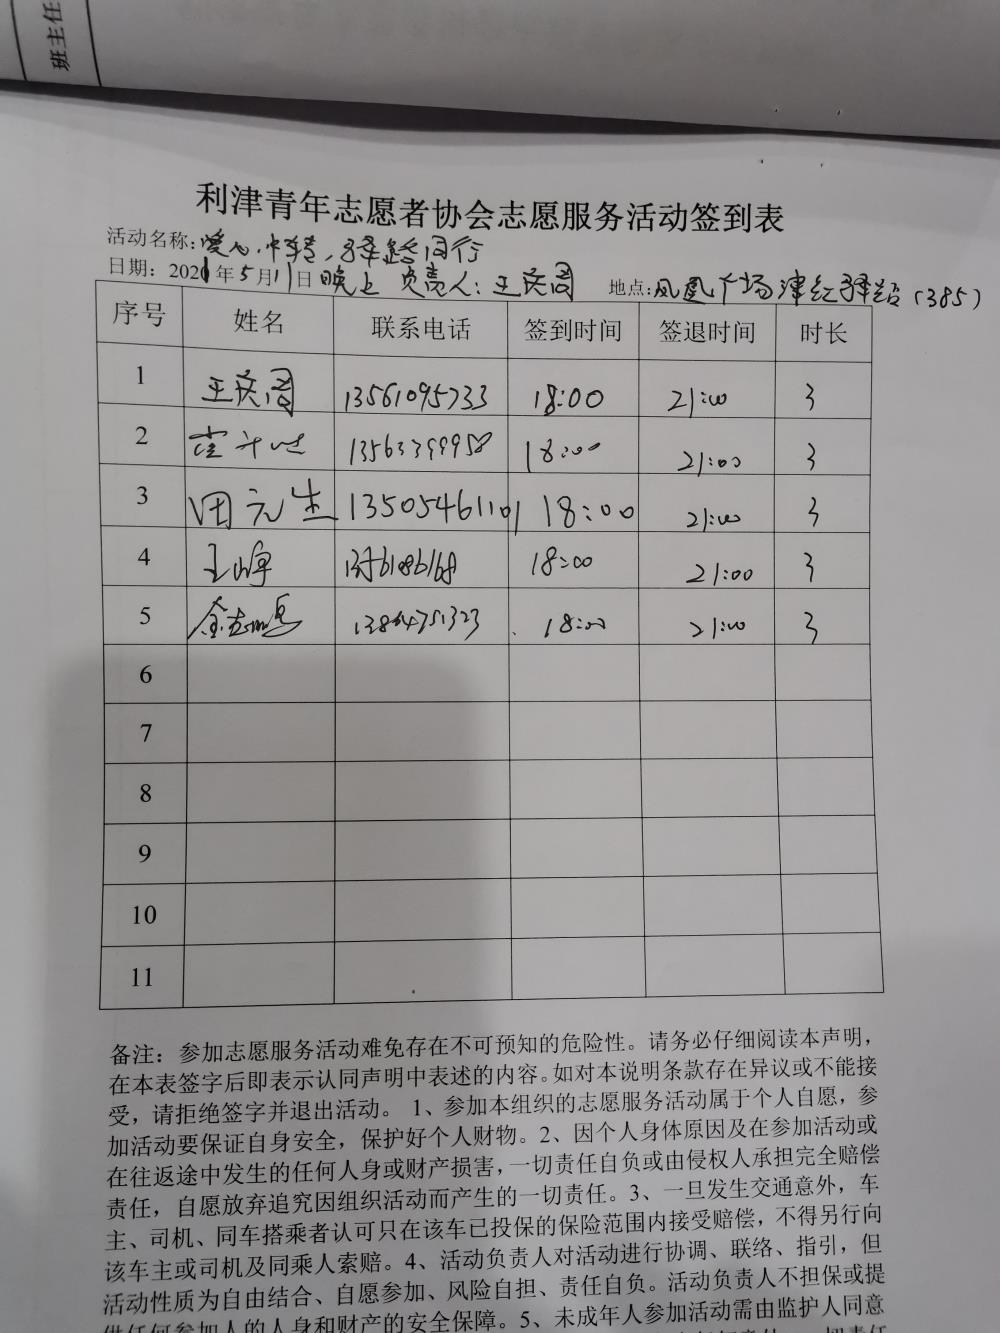 班主任
利津青年志愿者协会志愿服务活动签到表
活动名称：爱心中转，驿路同行
日期：2021年5月11日晚上 负责人：王庆周 地点：凤凰广场津红驿站（385）
序号 姓名 联系电话 签到时间 签退时间 时长
1 王庆周 13561095733 18:00 21:00 3
2 18:00 21:00 3
3 田元生 13505461101 18:00 21:00 3
4 王峰 18:00 21:00 3
5 13864751323 18:00 21:00 3
6
7
8
9
10
11
备注：参加志愿服务活动难免存在不可预知的危险性。请务必仔细阅读本声明，
在本表签字后即表示认同声明中表述的内容。如对本说明条款存在异议或不能接
受，请拒绝签字并退出活动。 1、参加本组织的志愿服务活动属于个人自愿，参
加活动要保证自身安全，保护好个人财物。2、因个人身体原因及在参加活动或
在往返途中发生的任何人身或财产损害，一切责任自负或由侵权人承担完全赔偿
责任，自愿放弃追究因组织活动而产生的一切责任。3、一旦发生交通意外，车
主、司机、同车搭乘者认可只在该车已投保的保险范围内接受赔偿，不得另行向
该车主或司机及同乘人索赔。4、活动负责人对活动进行协调、联络、指引，但
活动性质为自由结合、自愿参加、风险自担、责任自负。活动负责人不担保或提
供任何参加人的人身和财产的安全保障。5、未成年人参加活动需由监护人同意